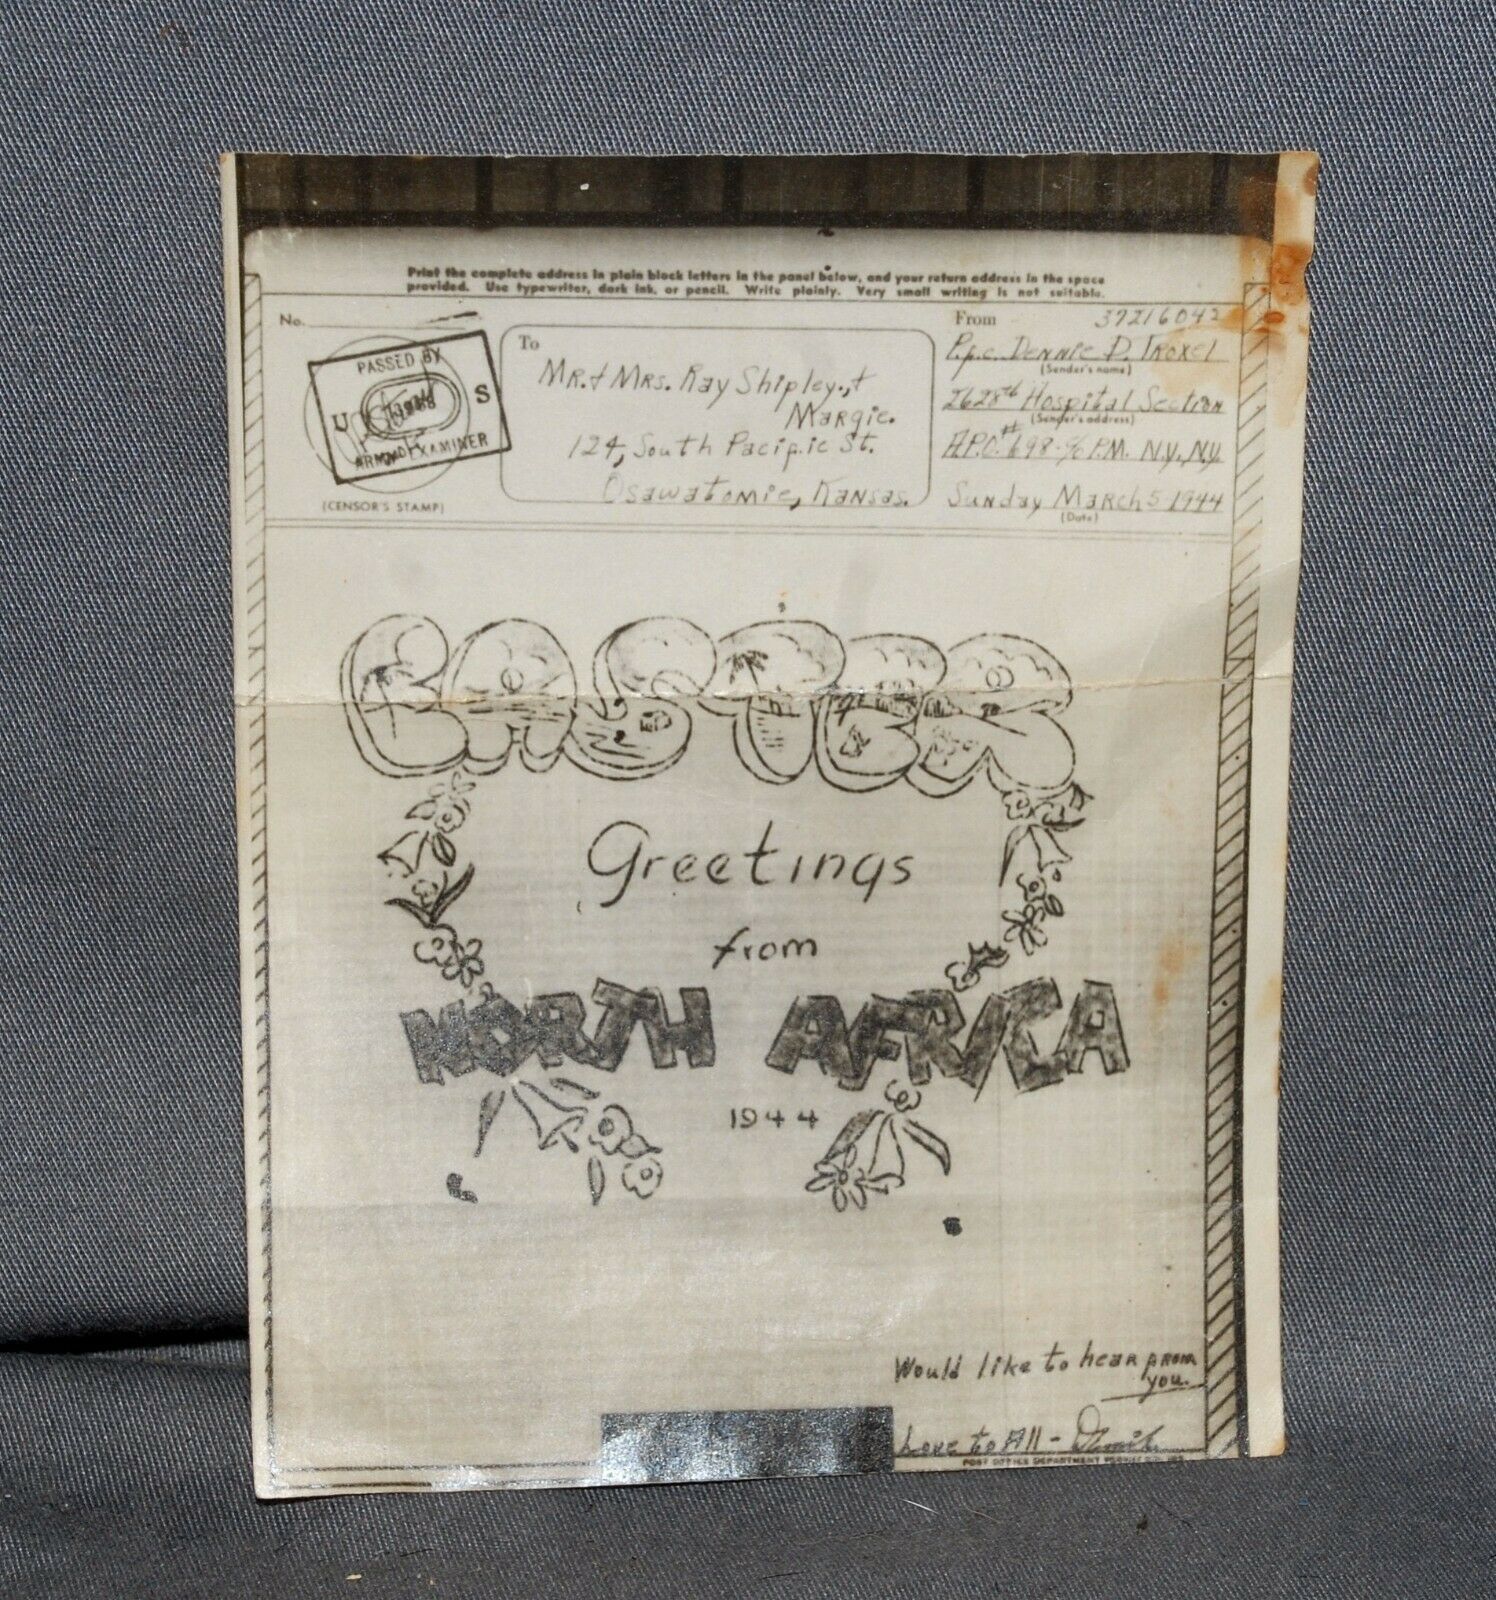 Print the complete address in plain block letters in the panel below, and your return address in the space
provided. Use typewriter, dark ink, or pencil. Write plainly. Very small writing is not suitable.
No.
PASSED BY
U S
ARMY EXAMINER
(CENSOR'S STAMP)
To
MR. & MRS. Ray Shipley., &
Margie.
124, South Pacific St.
Osawatomie, Kansas.
From 37216042
P.f.c. Dennie D. Troxel
(Sender's name)
2628th Hospital Section
(Sender's address)
A.P.O. #698 - % P.M. N.Y., N.Y.
Sunday March 5 1944
(Date)
EASTER
Greetings
from
NORTH AFRICA
1944
Would like to hear from
you.
Love to All -
POST OFFICE DEPARTMENT PERMIT NO.